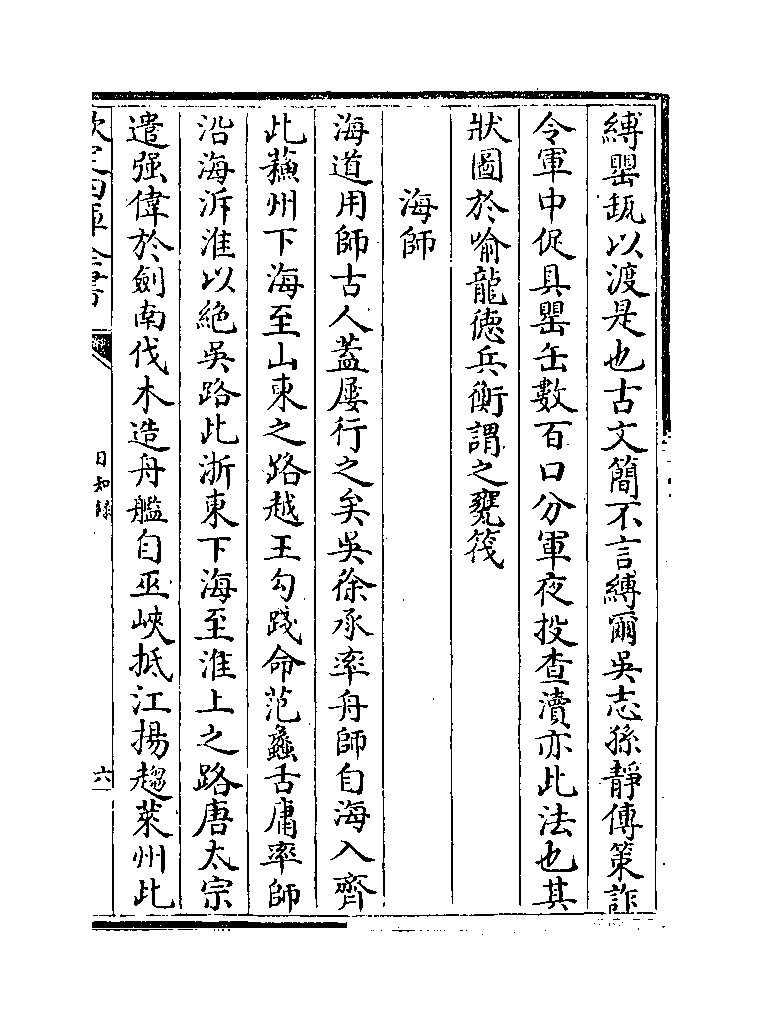 縛罌缻以渡是也古文簡不言縛爾吳志孫靜傳策詐
令軍中促具罌缶數百口分軍夜投查瀆亦此法也其
狀圖於喻龍德兵衡謂之甕筏
海師
海道用師古人蓋屢行之矣吳徐承率舟師自海入齊
此蘇州下海至山東之路越王勾踐命范蠡舌庸率師
沿海泝淮以絶吳路此浙東下海至淮上之路唐太宗
遣强偉於劍南伐木造舟艦自巫峽抵江揚趨萊州此
欽定四庫全書
日知錄
六